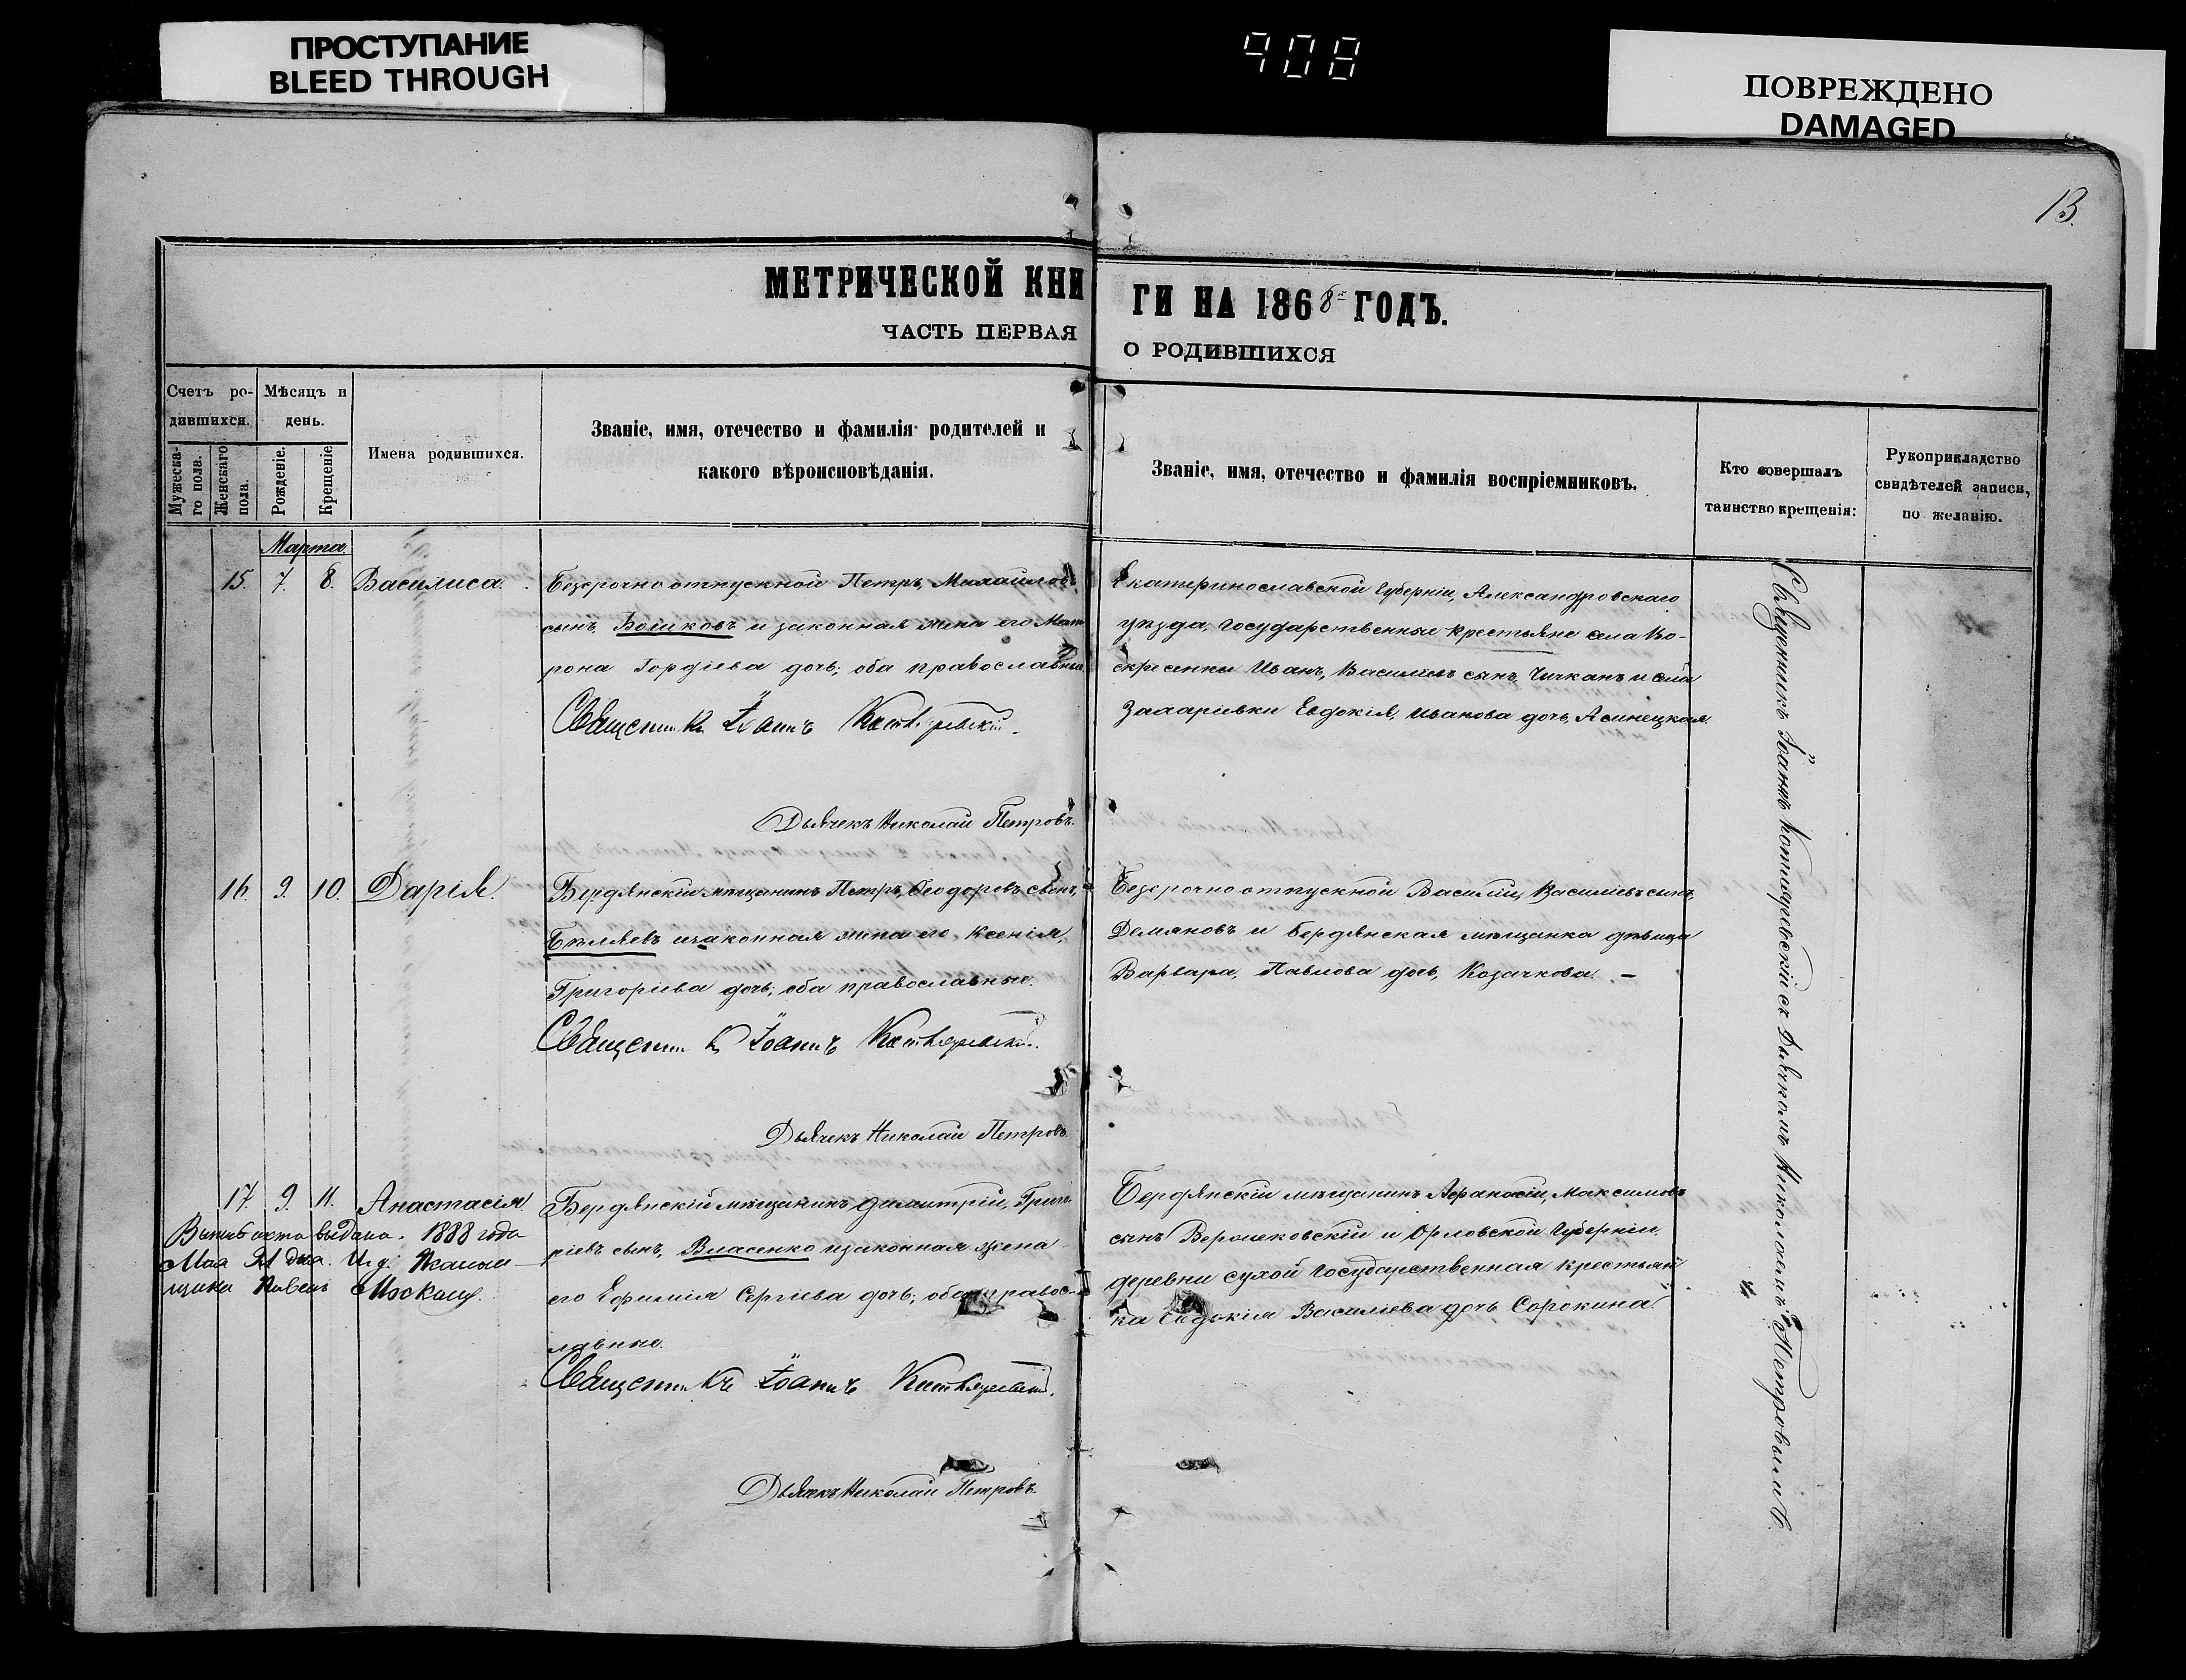 ПРОСТУПАНИЕ
BLEED THROUGH
908
ПОВРЕЖДЕНО
DAMAGED
13.
МЕТРИЧЕСКОЙ КНИГИ НА 1868 ГОДЪ.
ЧАСТЬ ПЕРВАЯ О РОДИВШИХСЯ
Счетъ ро-
дившихся.
Мужеска-
го пола.
Женскаго
пола.
Мѣсяцъ и
день.
Рожденіе.
Крещеніе.
Имена родившихся.
Званіе, имя, отечество и фамилія родителей и
какого вѣроисповѣданія.
Званіе, имя, отечество и фамилія воспріемниковъ.
Кто совершалъ
таинство крещенія:
Рукоприкладство
свидѣтелей записи,
по желанію.
Марта
15. 7. 8. Василиса.
Безсрочноотпускной Петръ, Михаиловъ
сынъ, Бойковъ и законная жена его Мат
рона Гордіева дочь; оба православные.
Священникъ Іоаннъ Котляревскій.
Дьячекъ Николай Петровъ.
Екатеринославской Губерніи, Александровскаго
уѣзда, государственные крестьяне села Во-
скресенки Иванъ, Васильевъ сынъ, Чичканъ и села
Захаріевки Евдокія, Иванова дочь,
16. 9. 10. Дарія.
Бердянскій мѣщанинъ Петръ, Ѳеодоровъ сынъ,
Бѣляевъ и законная жена его Ксенія,
Григоріева дочь; оба православные.
Священникъ Іоаннъ Котляревскій.
Дьячекъ Николай Петровъ.
Безсрочноотпускной Василій, Васильевъ сынъ,
Демяновъ и Бердянская мѣщанка дѣвица
Варвара, Павлова дочь, Козачкова. –
17. 9. 11. Анастасія.
выдана. 1888 года
Мая дня. И. д.
щика Павелъ
Бердянскій мѣщанинъ Димитрій, Григо
ріевъ сынъ, Власенко и законная жена
его Ефимія Сергіева дочь; оба правос-
лавные.
Священникъ Іоаннъ Котляревскій.
Дьячекъ Николай Петровъ.
Бердянскій мѣщанинъ Афанасій, Максимовъ
сынъ и Орловской Губерніи,
деревни Сухой Государственная крестьян
ка Евдокія Василіева дочь Сорокина.
Священникъ Іоаннъ Котляревскій съ Дьячкомъ Николаемъ Петровымъ.